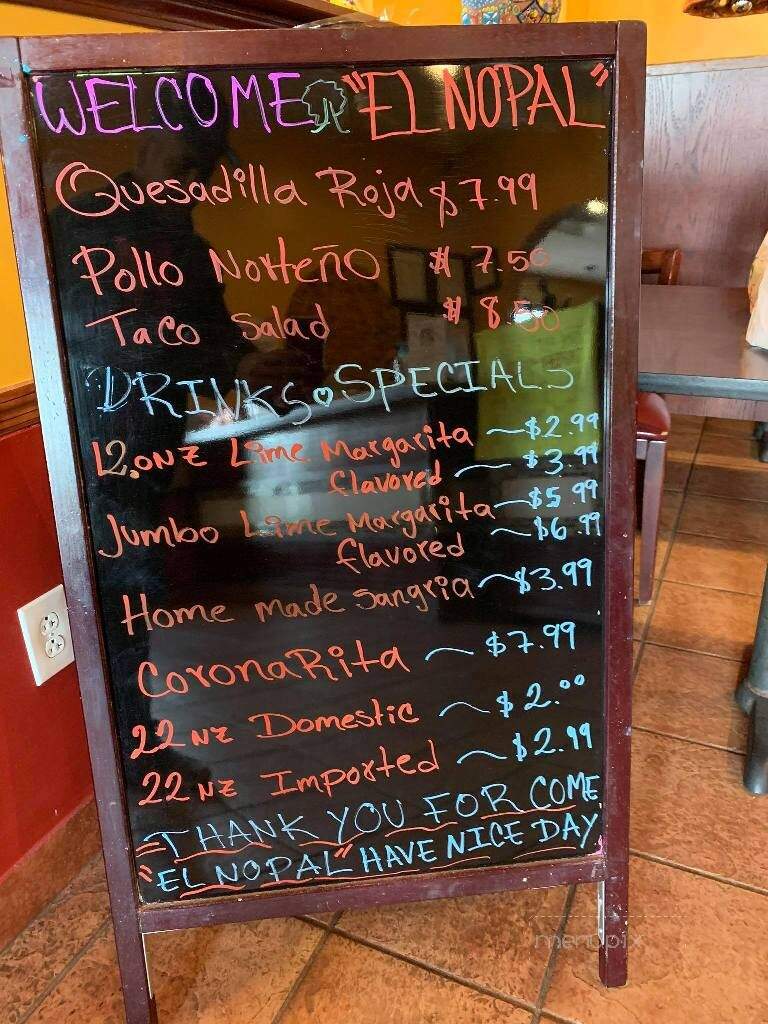 WELCOME "EL NOPAL"
Quesadilla Roja $7.99
Pollo Norteño $ 7.50
Taco Salad $ 8.50
DRINKS SPECIALS
12.ONZ Lime Margarita ~ $2.99
flavored ~ $3.99
Jumbo Lime Margarita ~ $5.99
flavored ~ $6.99
Home made sangria ~ $3.99
CoronaRita ~ $7.99
22 NZ Domestic ~ $2.00
22 NZ Imported ~ $2.99
THANK YOU FOR COME
"EL NOPAL" HAVE NICE DAY
menupix